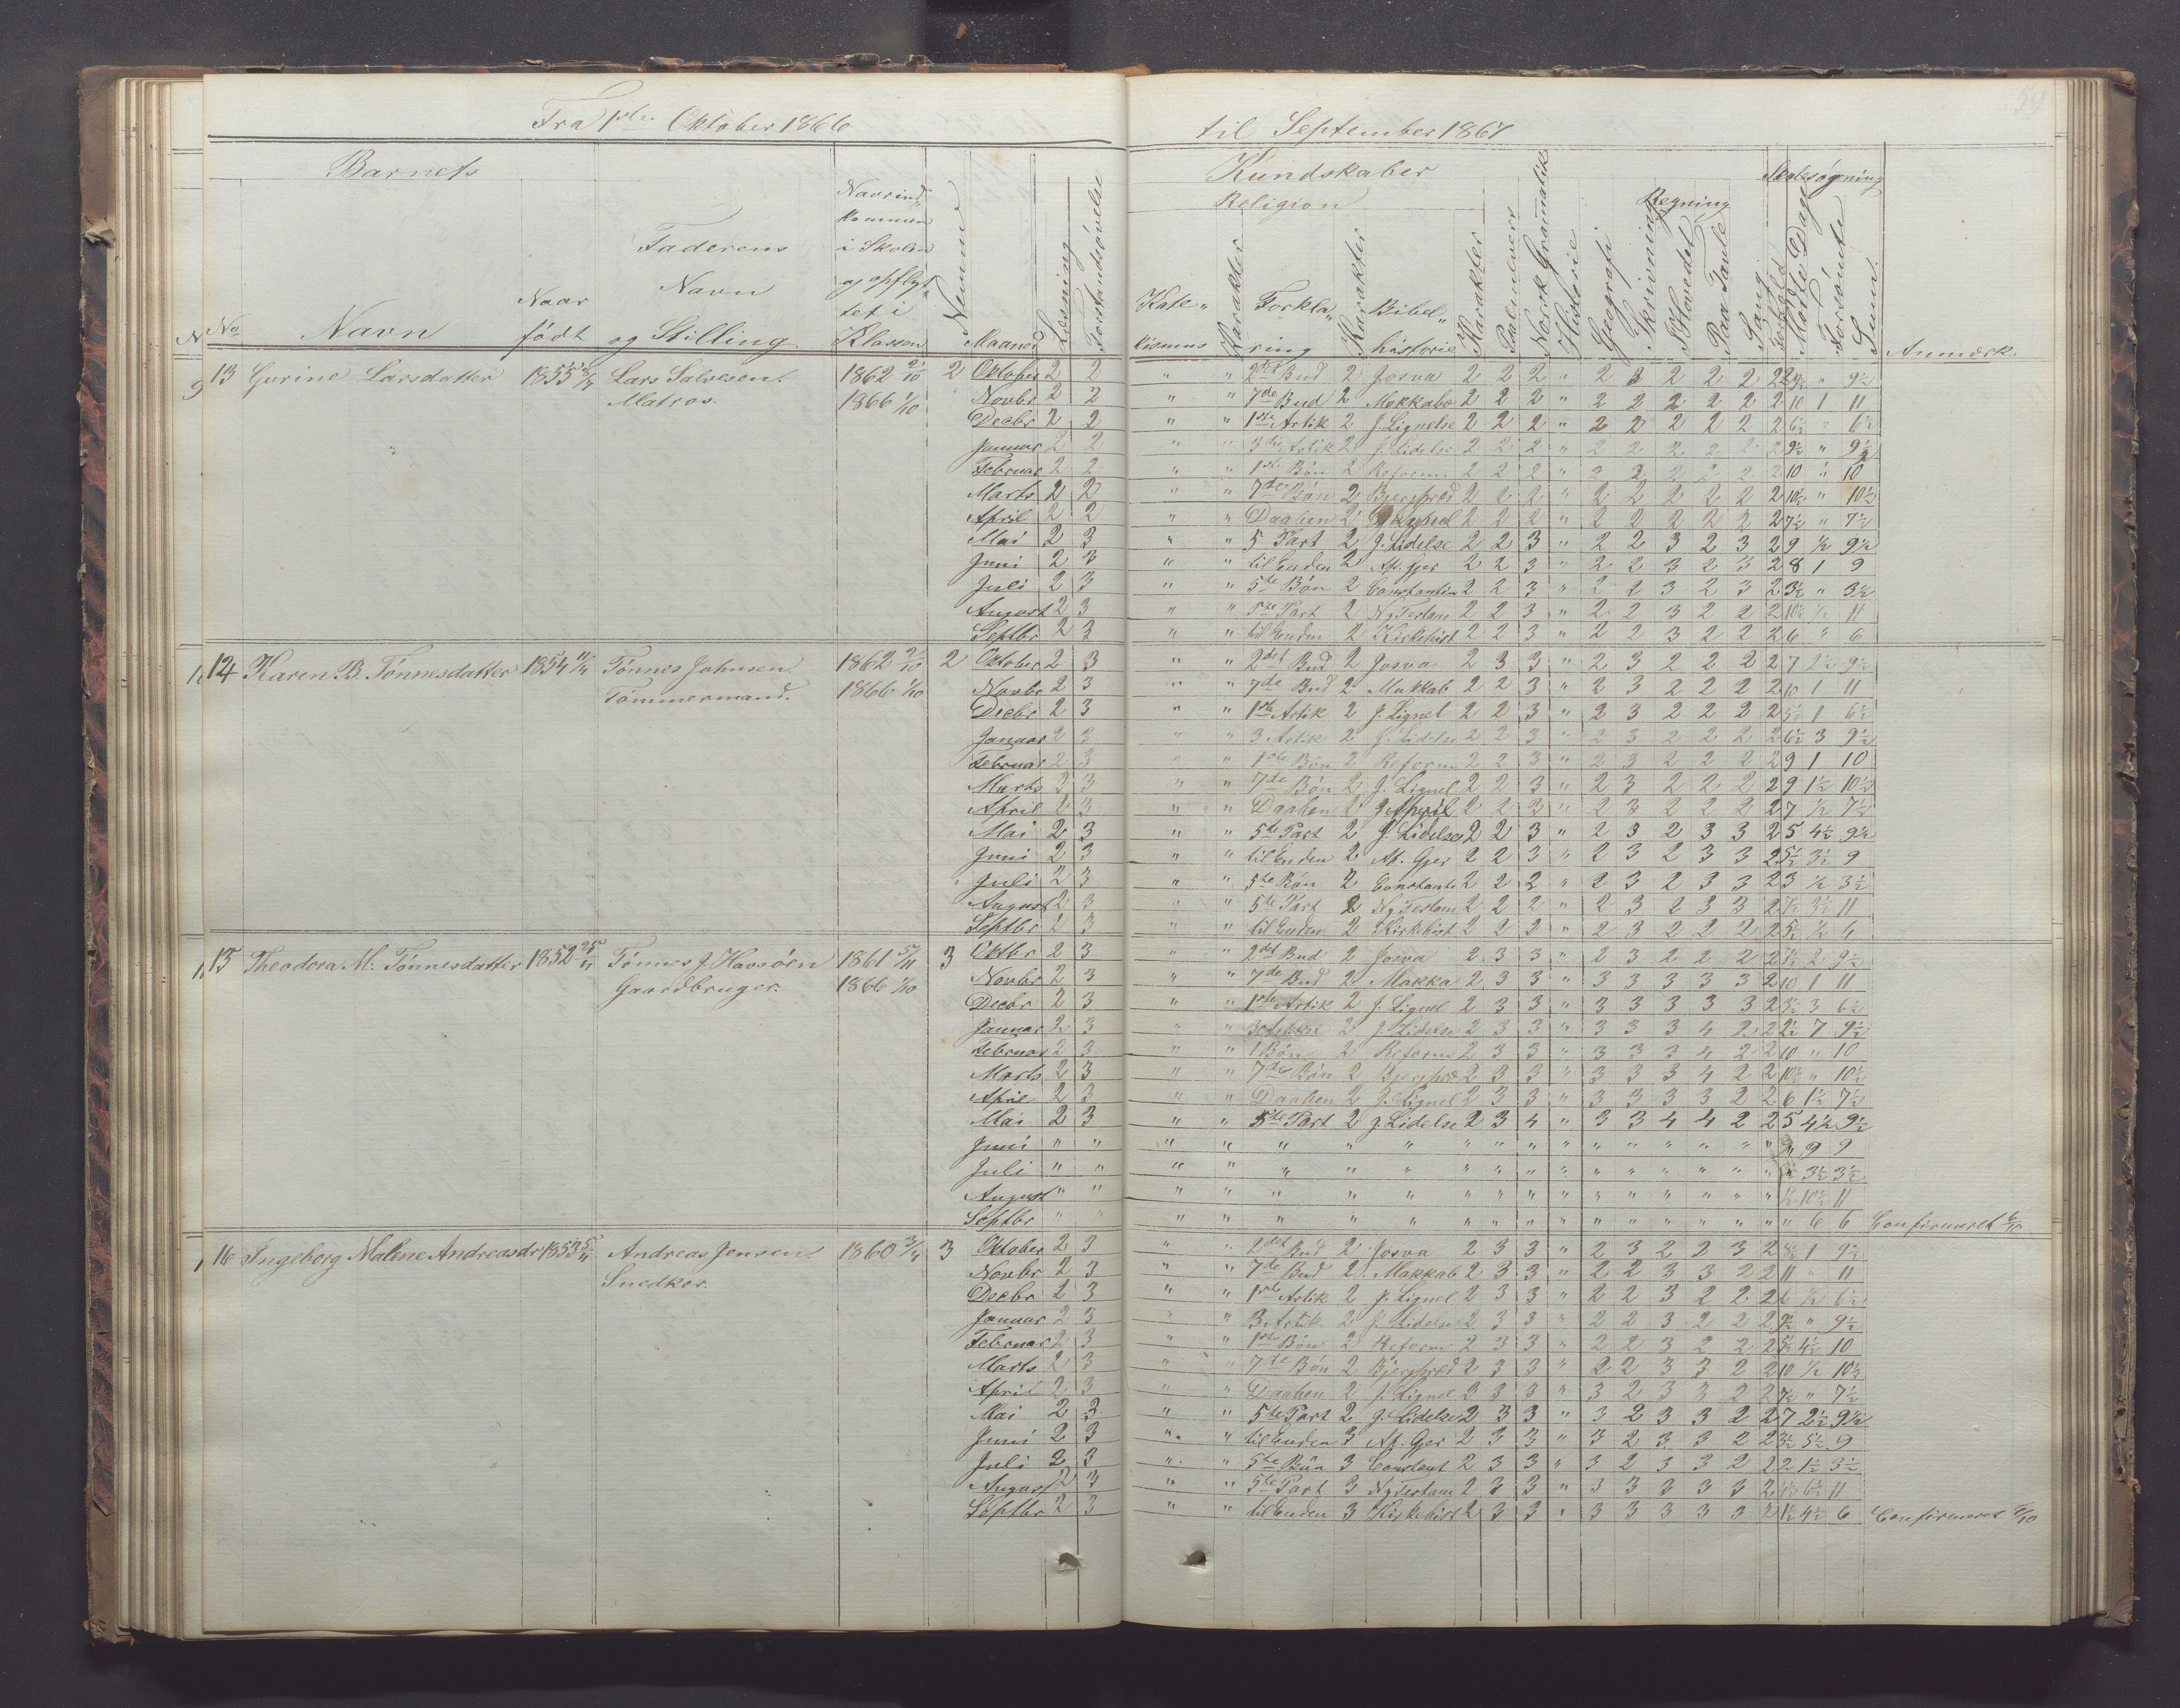 Fra 1ste Oktober 1866
til September 1867
50
Barnets
No
Navn
Naar født
Faderens Navn og Stilling
Naar ind„kommen i Skolen og opflyt„tet i Klassen
Nemme
Maaned
Læsning
Forstandsøvelse
Kundskaber
Religion
Kate„kismus
Karakter
Forkla„ring
Karakter
Bibel„historie
Karakter
Psalmevers
Norsk Gramatik
Historie
Geografi
Skrivning
Regning
I Hovedet
Paa Tavle
Sang
Forhold
Skolesøgning
Mødte Dage
Forsømte
Sum
Anmærk.
13 Gurine Larsdatter 1855 Lars Salvesen. 1862 2/10 2
Matros. 1866 1/10
Oktober 2 2 " " 2det Bud 2 Josva 2 2 2 " 2 3 2 2 2 2 9½ " 9½
Novbr 2 2 " " 7de Bud 2 Makkabæ 2 2 2 " 2 2 2 2 2 2 10 1 11
Decbr 2 2 " " 1ste Artik 2 J. Lignelse 2 2 2 " 2 2 2 2 2 2 6½ " 6½
Januar 2 2 " " 3die Artik 2 J. Lidelse 2 2 2 " 2 2 2 2 2 2 9½ " 9½
Februar 2 2 " " 1ste Bøn 2 Reform 2 2 2 " 2 2 2 2 2 2 10 " 10
Marts 2 2 " " 7de Bøn 2 Bjergpræd 2 2 2 " 2 2 2 2 2 2 10½ " 10½
April 2 2 " " Daaben 2 2 2 2 " 2 2 2 2 2 2 7½ " 7½
Mai 2 3 " " 5 Part 2 J. Lidelse 2 2 3 " 2 2 3 2 3 2 9 ½ 9½
Juni 2 3 " " til Enden 2 Ap. Gjer 2 2 3 " 2 2 3 2 3 2 8 1 9
Juli 2 3 " " 5te Bøn 2 Constantin 2 2 3 " 2 2 3 2 3 2 3½ " 3½
August 2 3 " " 5te Part 2 Ny Testam 2 2 3 " 2 2 3 2 2 2 10½ ½ 11
Septbr 2 3 " " til Enden 2 Kirkehist 2 2 3 " 2 2 3 2 2 2 6 " 6
14 Karen B. Tønnesdatter 1854 Tønnes Johnsen. 1862 2/10 2
Tømmermand. 1866 1/10
Oktober 2 3 " " 2det Bud 2 Josva 2 3 3 " 2 3 2 2 2 2 7 2½ 9½
Novbr 2 3 " " 7de Bud 2 Makkab 2 2 3 " 2 3 2 2 2 2 10 1 11
Decbr 2 3 " " 1ste Artik 2 J. Lignel 2 2 3 " 2 3 2 2 2 2 5½ 1 6½
Januar 2 3 " " 3 Artik 2 J. Lidelse 2 2 3 " 2 3 2 2 2 2 6½ 3 9½
Februar 2 3 " " 1ste Bøn 2 Reform 2 2 3 " 2 3 2 2 2 2 9 1 10
Marts 2 3 " " 7de Bøn 2 J. Lignel 2 2 3 " 2 3 2 2 2 2 9 1½ 10½
April 2 3 " " Daaben 2 2 2 3 " 2 3 2 2 2 2 7 ½ 7½
Mai 2 3 " " 5te Part 2 J. Lidelse 2 2 3 " 2 3 2 3 3 2 5 4½ 9½
Juni 2 3 " " til Enden 2 Ap. Gjer 2 2 3 " 2 3 2 3 3 2 5½ 3½ 9
Juli 2 3 " " 5te Bøn 2 Constanti 2 2 2 " 2 3 2 3 3 2 3 ½ 3½
August 2 3 " " 5te Part 2 Ny Testam 2 2 2 " 2 3 2 3 3 2 7½ 3½ 11
Septbr 2 3 " " til Enden 2 Kirkehist 2 2 2 " 2 3 2 2 2 2 5½ ½ 6
15 Theodora M. Tønnesdatter 1852 25/11 Tønnes J. Havsøen 1861 5/11 3
Gaardbruger. 1866 1/10
Oktbr 2 3 " " 2det Bud 2 Josva 2 3 3 " 2 3 2 2 2 2 7½ 2 9½
Novbr 2 3 " " 7de Bud 2 Makka 2 3 3 " 3 3 3 3 3 2 10 1 11
Decbr 2 3 " " 1ste Artik 2 J. Lignel 2 3 3 " 3 3 3 3 3 2 3½ 3 6½
Januar 2 3 " " 3 Artikel 2 J. Lidelse 2 3 3 " 3 3 3 4 2 2 2½ 7 9½
Februar 2 3 " " 1 Bøn 2 Reform 2 3 3 " 3 3 3 4 2 2 10 " 10
Marts 2 3 " " 7de Bøn 2 Bjergpræd 2 3 3 " 3 3 3 4 2 2 10½ " 10½
April 2 3 " " Daaben 2 J. Lignel 2 3 3 " 3 3 3 3 2 2 6 1½ 7½
Mai 2 3 " " 5te Part 2 J. Lidelse 2 3 4 " 3 3 4 4 2 2 5 4½ 9½
Juni " " " " " " " " " " " " " " " " " " 9 9
Juli " " " " " " " " " " " " " " " " " " 3½ 3½
August " " " " " " " " " " " " " " " " " ½ 10½ 11
Septbr " " " " " " " " " " " " " " " " " " 6 6 Confirmeret 6/10
16 Ingeborg Malene Andreasdr 1853 5/11 Andreas Jensen. 1860 3/4 3
Snedker.
Oktober 2 3 " " 2det Bud 2 Josva 2 3 3 " 2 3 2 2 3 2 8½ 1 9½
Novbr 2 3 " " 7de Bud 2 Makkab 2 3 3 " 2 2 3 3 2 2 11 " 11
Decbr 2 3 " " 1ste Artik 2 J. Lignel 2 3 3 " 2 2 3 2 2 2 6 ½ 6½
Januar 2 3 " " 3 Artik 2 J. Lidelse 2 3 3 " 2 2 3 2 2 2 9½ " 9½
Februar 2 3 " " 1ste Bøn 2 Reform 2 3 3 " 2 2 3 2 2 2 5½ 4½ 10
Marts 2 3 " " 7de Bøn 2 Bjergpræd 2 3 3 " 2 2 3 3 2 2 10 ½ 10½
April 2 3 " " Daaben 2 J. Lignel 2 3 3 " 3 2 3 3 2 2 7½ " 7½
Mai 2 3 " " 5te Part 2 J. Lidelse 2 3 3 " 3 2 3 3 2 2 7 2½ 9½
Juni 2 3 " " til Enden 3 Ap. Gjer 2 3 3 " 3 2 3 3 2 2 3½ 5½ 9
Juli 2 3 " " 5te Bøn 3 Constant 2 3 3 " 3 2 3 3 2 2 2 1½ 3½
August 2 3 " " 5te Part 3 Ny Testam 2 3 3 " 3 3 3 3 3 2 4½ 6½ 11
Septbr 2 3 " " til Enden 3 Kirkehist 2 3 3 " 3 3 3 3 3 2 1½ 4½ 6 Confirmeret 6/10